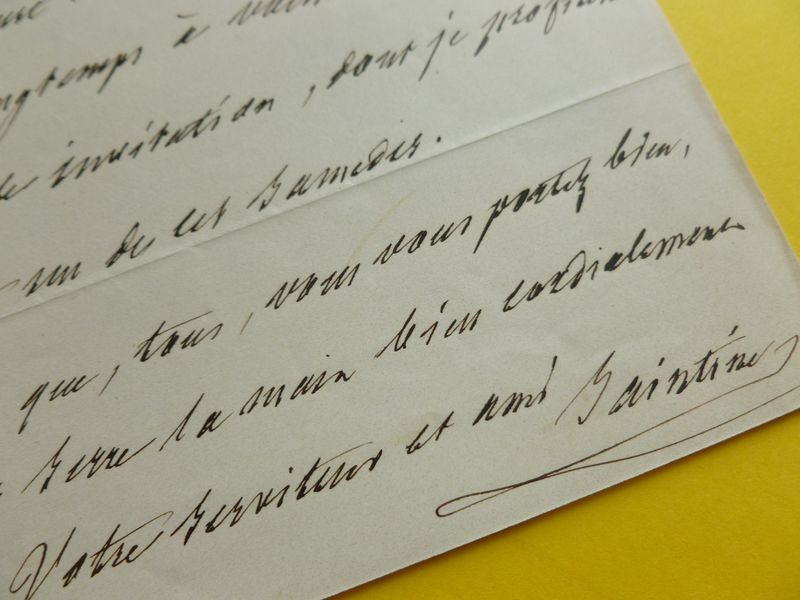 ngtemps à
e invitation, dont je profi
un de ces Samedis.
que, tous, vous vous portez bien,
serre la main bien cordialement
Votre Serviteur et ami Saintine